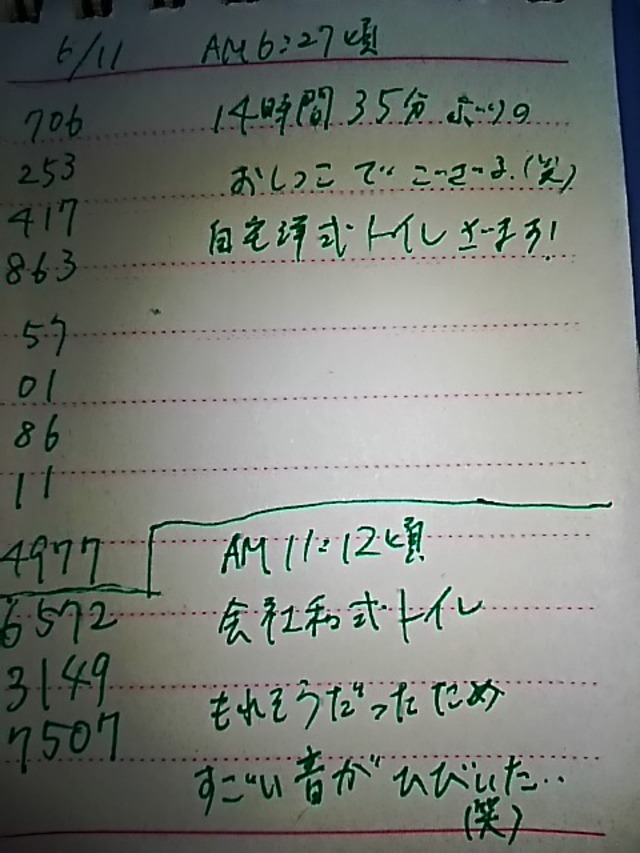 6/11 AM6:27頃
706 14時間35分ぶりの
253 おしっこでございます.(笑)
417 自宅洋式トイレざます!
863
57
01
86
11
4977 AM11:12頃
6572 会社和式トイレ
3149 もれそうだったため
7507
すごい音がひびいた..
(笑)